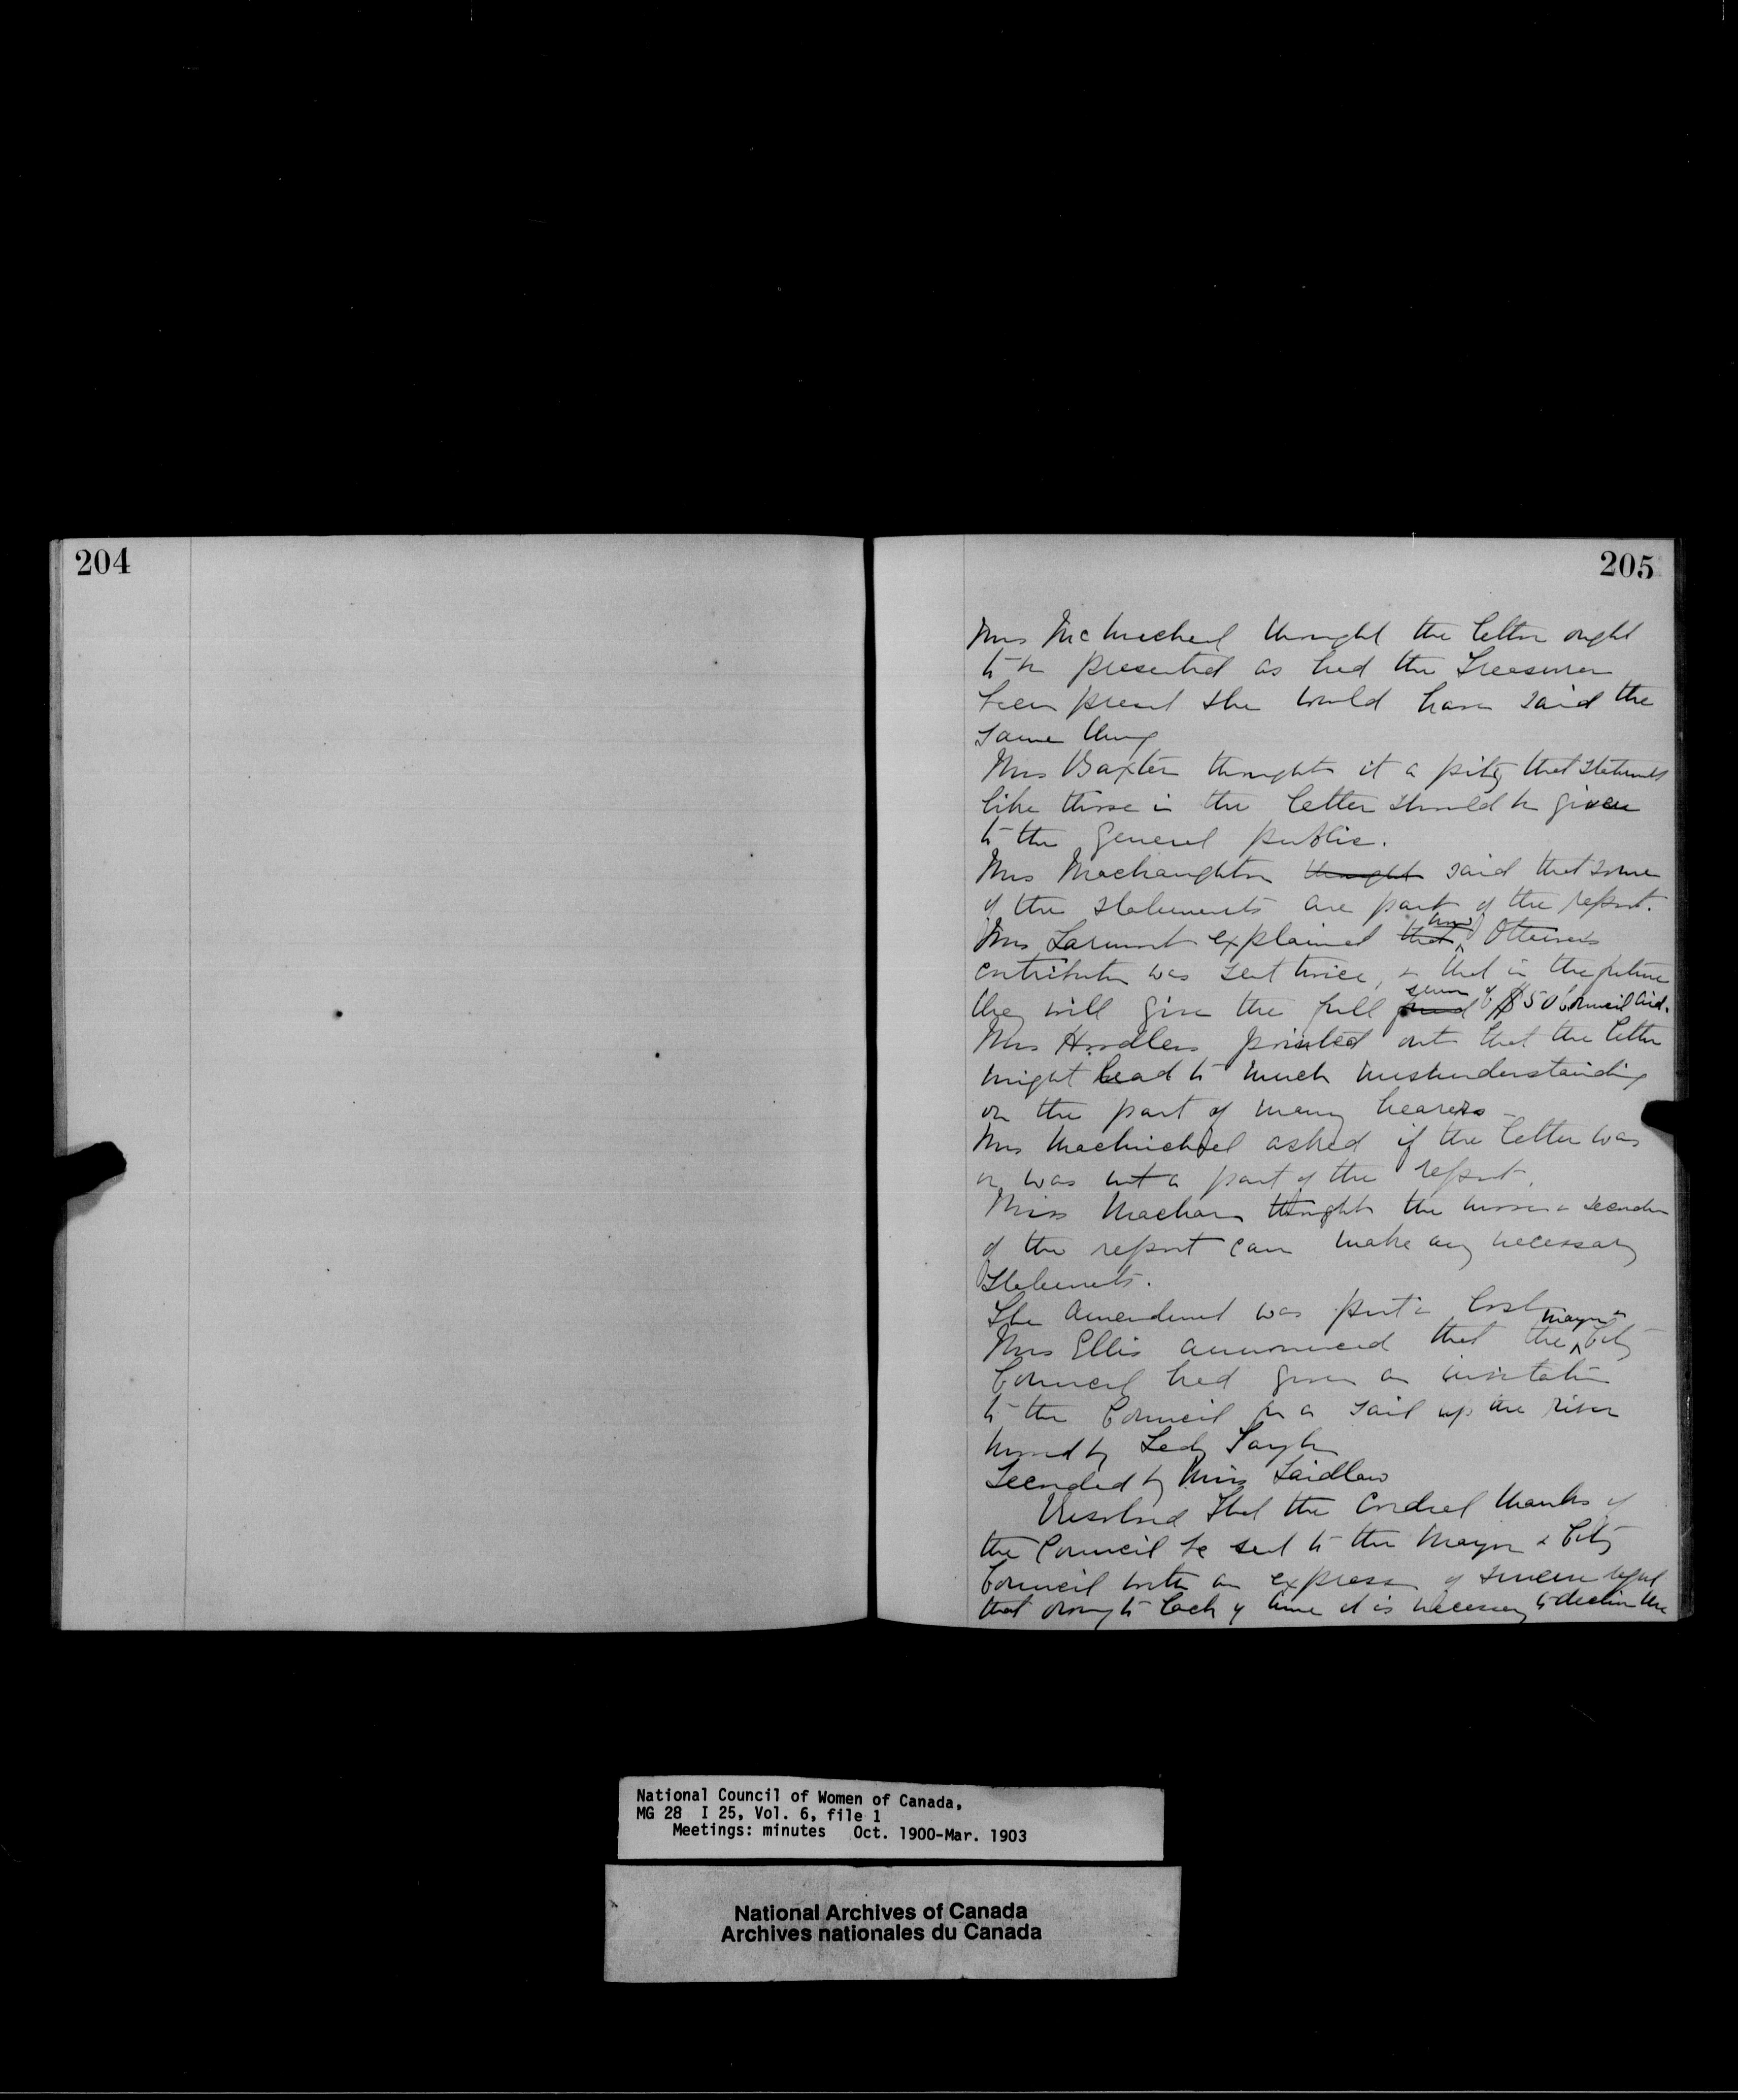 204
205
Mrs McMicheal thought the letter ought
to be presented as had the Treasurer
been present she would have said the
same thing
Mrs Baxter thought it a pity that statements
like those in the letter should be given
to the general public.
Mrs Macnaughton thought said that some
of the statements are part of the report.
Mrs Larmont explained that how Ottawa's
contribution was sent twice, & that in the future
they will give the full fund sum of $50 Council aid.
Mrs Hoodless pointed out that the letter
might lead to much misunderstanding
on the part of many hearers
Mrs Macmichael asked if the letter was
or was not a part of the report.
Miss Machar thought the mover & seconder
of the report can make any necessary
statements.
The amendment was put & lost
Mrs Ellis announced that the Mayor & City
Council had given an invitation
to the Council for a sail up the river
Moved by Lady Taylor
Seconded by Miss Laidlaw
Resolved That the cordial thanks of
the Council be sent to the Mayor & City
Council with an express of sincere regret
that owing to lack of time it is necessary to decline the
National Council of Women of Canada,
MG 28 I 25, Vol. 6, file 1
Meetings: minutes Oct. 1900-Mar. 1903
National Archives of Canada
Archives nationales du Canada